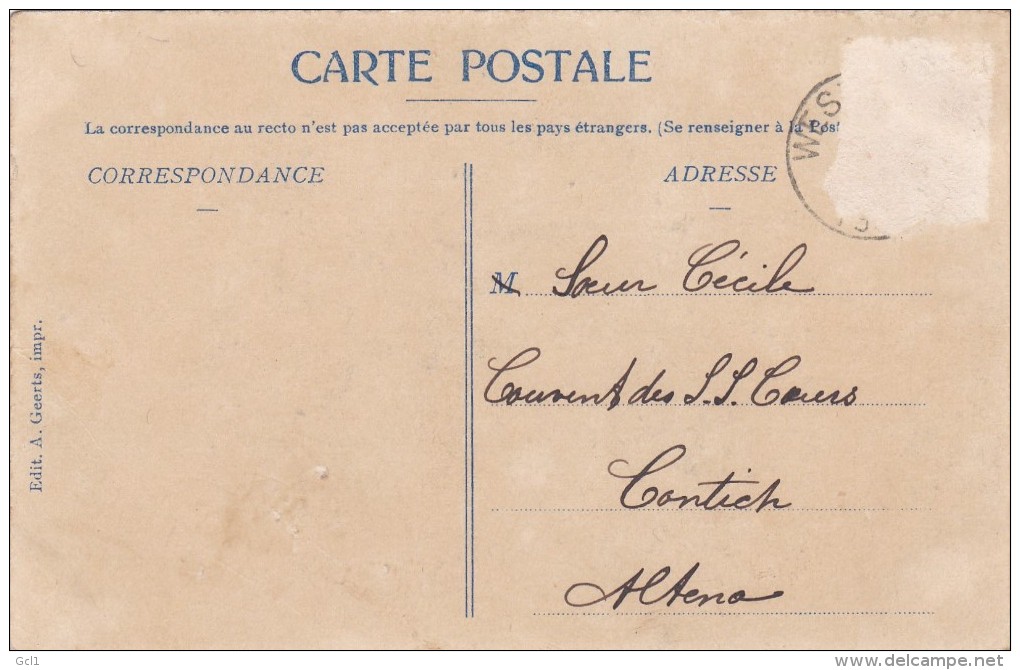 CARTE POSTALE
La correspondance au recto n'est pas acceptée par tous les pays étrangers. (Se renseigner à la Post
CORRESPONDANCE
ADRESSE
WES
M Sœur Cécile
Couvent des S.S. Cœurs
Contich
Altena
Edit. A. Geerts, impr.
Gcl1
delcampe.net